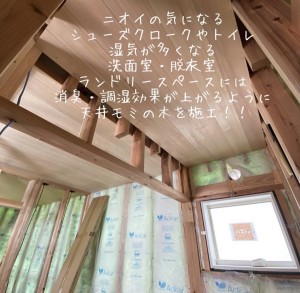 ニオイの気になる
シューズクロークやトイレ
湿気が多くなる
洗面室・脱衣室
ランドリースペースには
消臭・調湿効果が上がるように
天井モミの木を施工！！